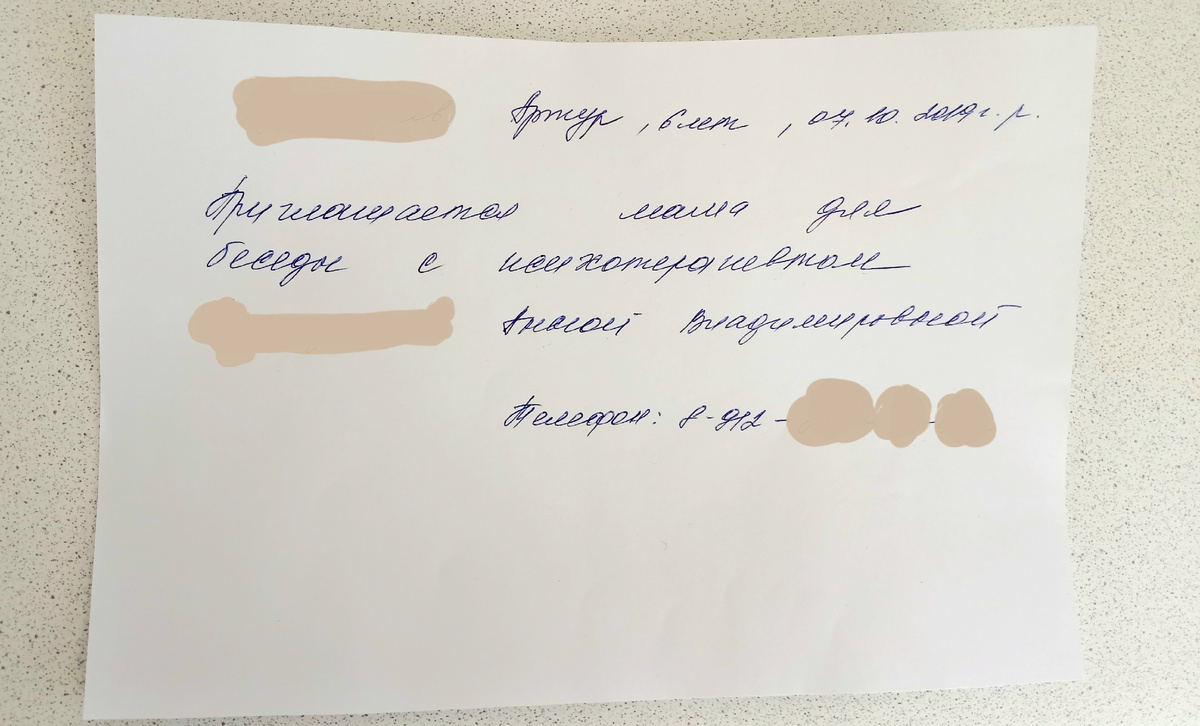 Артур, 6 лет, 07.10.2019 г.р.
Приглашается мама для
беседы с психотерапевтом
Анной Владимировной
Телефон: 8-912-